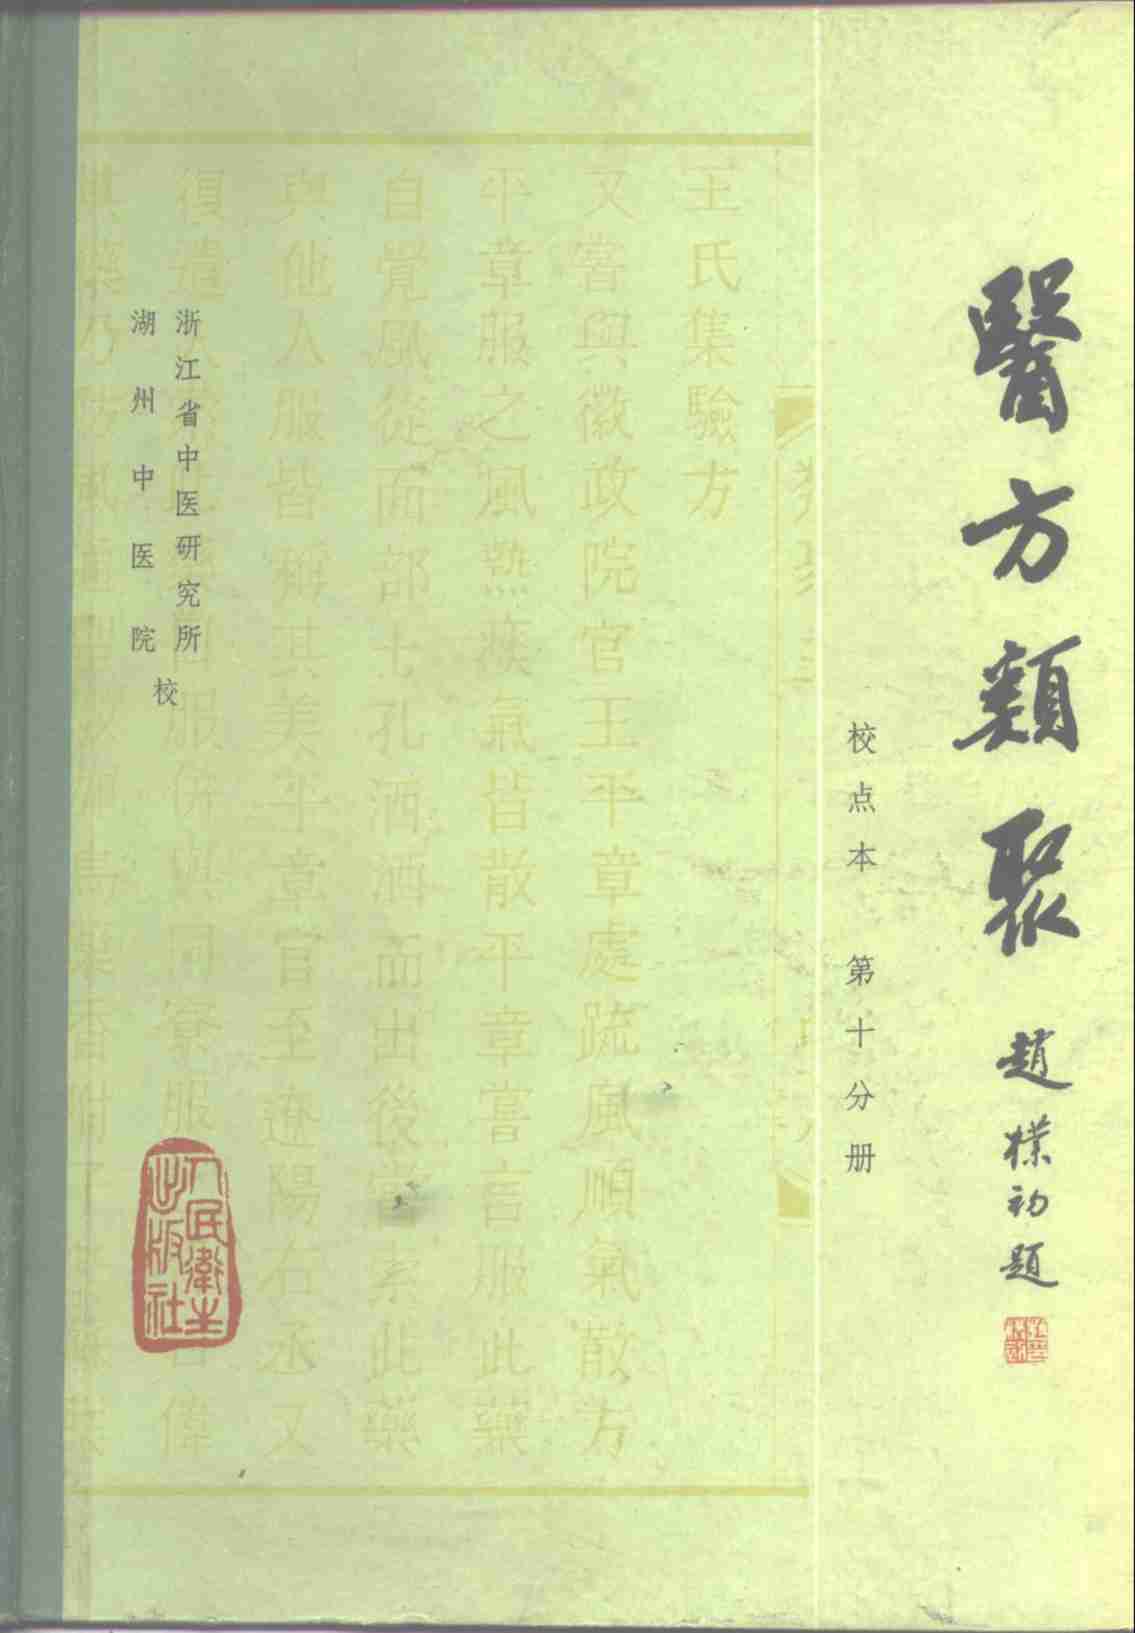 醫方類聚
趙樸初題
校点本 第十分册
王氏集驗方
又嘗與徽政院官王平章處疏風順氣散方
平章服之風熱痰氣皆散平章嘗言服此藥
自覺風從面部七孔洒洒而出後嘗索此藥
與他人服皆稱其美平章官至遼陽右丞又
浙江省中医研究所
湖州中医院
校
人民衛生
出版社